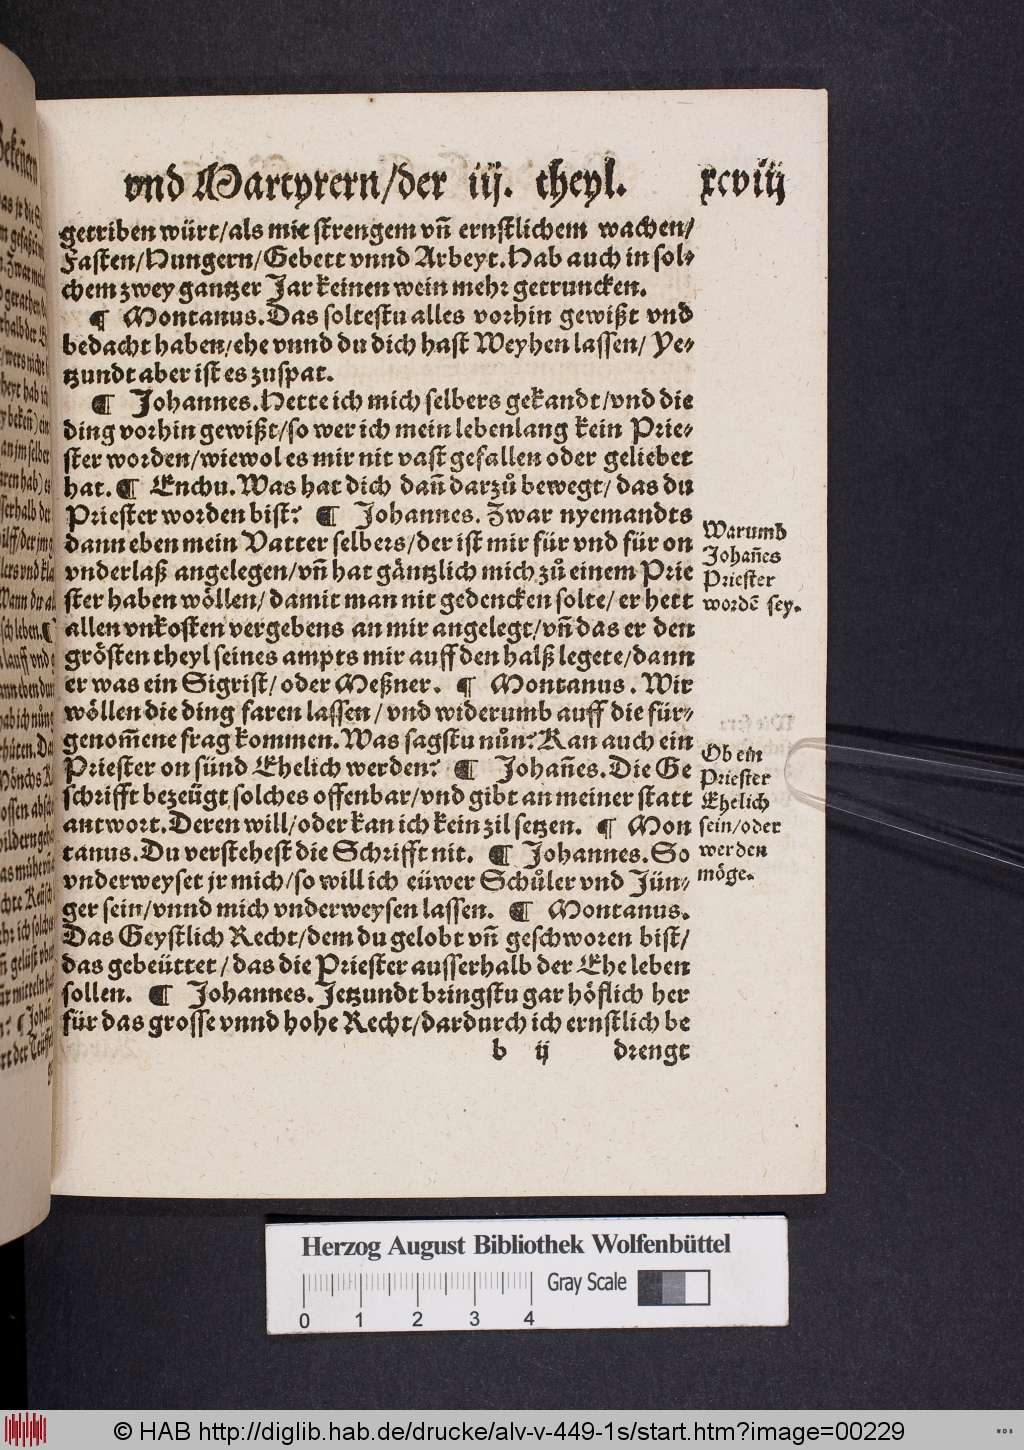 vnd Martyrern/der iij. theyl. xcviij
getriben würt/als mit strengem vñ ernstlichem wachen/
Fasten/Hungern/Gebett vnnd Arbeyt. Hab auch in sol⸗
chem zwey gantzer Jar keinen wein mehr getruncken.
¶ Montanus. Das soltestu alles vorhin gewißt vnd
bedacht haben/ehe vnnd du dich hast Weyhen lassen/ Ye⸗
tzundt aber ist es zuspat.
¶ Johannes. Hette ich mich selbers gekandt/vnd die
ding vorhin gewißt/so wer ich mein lebenlang kein Prie⸗
ster worden/wiewol es mir nit vast gefallen oder geliebet
hat. ¶ Enchu. Was hat dich dañ darzů bewegt/ das du
Priester worden bist? ¶ Johannes. Zwar nyemandts
dann eben mein Vatter selbers/der ist mir für vnd für on
vnderlaß angelegen/vñ hat gäntzlich mich zů einem Prie
ster haben wöllen/ damit man nit gedencken solte/ er hett
allen vnkosten vergebens an mir angelegt/vñ das er den
grösten theyl seines ampts mir auff den halß legete/dann
er was ein Sigrist/ oder Meßner. ¶ Montanus. Wir
wöllen die ding faren lassen/ vnd widerumb auff die für⸗
genom̃ene frag kommen. Was sagstu nůn? Kan auch ein
Priester on sünd Ehelich werden? ¶ Johañes. Die Ge
schrifft bezeügt solches offenbar/vnd gibt an meiner statt
antwort. Deren will/oder kan ich kein zil setzen. ¶ Mon
tanus. Du verstehest die Schrifft nit. ¶ Johannes. So
vnderweyset jr mich/so will ich eüwer Schůler vnd Jün⸗
ger sein/vnnd mich vnderweysen lassen. ¶ Montanus.
Das Geystlich Recht/dem du gelobt vñ geschworen bist/
das gebeüttet/ das die Priester ausserhalb der Ehe leben
sollen. ¶ Johannes. Jetzundt bringstu gar höflich her
für das grosse vnnd hohe Recht/dardurch ich ernstlich be
b ij drengt
Warumb
Johañes
Priester
wordẽ sey.
Ob ein
Priester
Ehelich
sein/oder
werden
möge.
Herzog August Bibliothek Wolfenbüttel
Gray Scale
0 1 2 3 4
© HAB http://diglib.hab.de/drucke/alv-v-449-1s/start.htm?image=00229